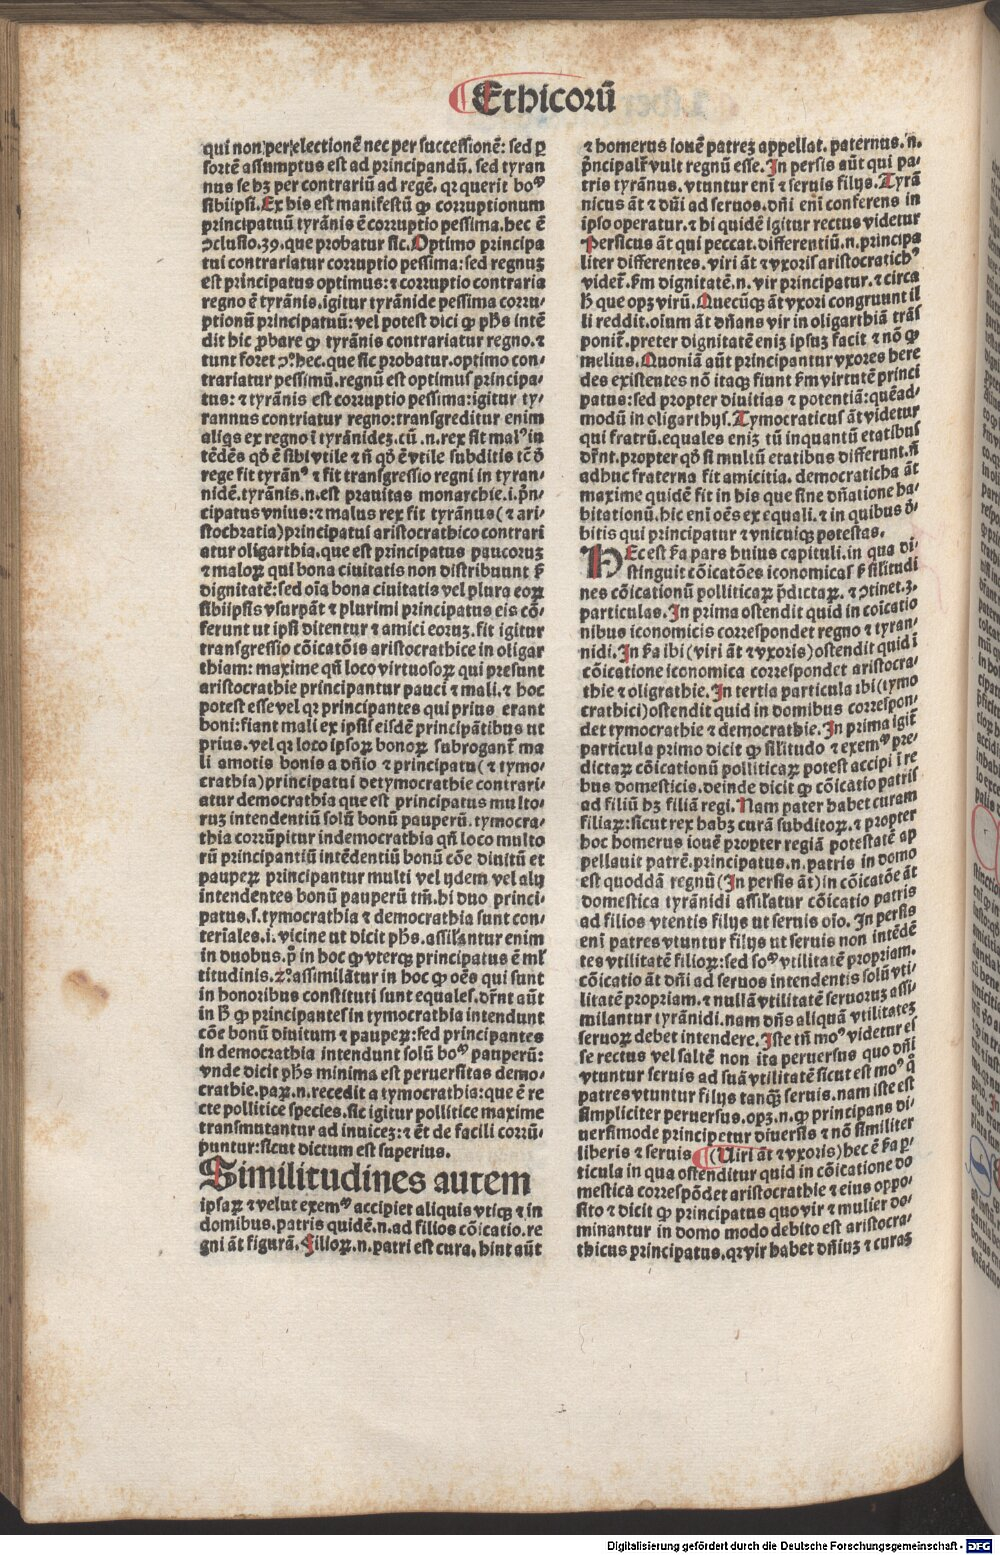 Ethicorū
qui non per electionē nec per successionē: sed ꝑ
sortē assumptus est ad principandū. sed tyran
nus se hꝫ per contrariū ad regē. qꝛ querit boꝰ
sibiipsi. Ex his est manifestū ꝙ corruptionum
principatuū tyrānis ē corruptio pessima. hec ē
ↄclusio.39. que probatur sic. Optimo principa
tui contrariatur corruptio pessima: sed regnuꝫ
est principatus optimus: ⁊ corruptio contraria
regno ē tyrānis. igitur tyrānide pessima corru⸗
ptionū principatuū: vel potest dici ꝙ phs intē
dit hic ꝓbare ꝙ tyrānis contrariatur regno. ⁊
tunt foret ↄ.hec. que sic probatur. optimo con⸗
trariatur pessimū. regnū est optimus principa⸗
tus: ⁊ tyrānis est corruptio pessima: igitur ty⸗
rannus contriatur regno: transgreditur enim
aliqs ex regno ī tyrānideꝫ. cū .n. rex sit malꝰ in
tēdēs qđ ē sibi vtile ⁊ nō qđ ē vtile subditis tē đ
rege fit tyrānꝰ ⁊ fit transgressio regni in tyran⸗
nidē. tyrānis .n. est prauitas monarchie .i. pn̄⸗
cipatus vnius: ⁊ malus rex fit tyrānus (⁊ ari⸗
stochratia) principatui aristocrathico contrari
atur oligarthia. que est principatus paucoruꝫ
⁊ maloꝝ qui bona ciuitatis non distribuunt ẜ
dignitatē: sed oīa bona ciuitatis vel plura eoꝝ
sibiipsis vsurpāt ⁊ plurimi principatus eis cō⸗
ferunt ut ipsi ditentur ⁊ amici eoruꝫ. fit igitur
transgressio cōicatōis aristocrathice in oligar
thiam: maxime qn̄ loco virtuosoꝝ qui presunt
aristocrathie principantur pauci ⁊ mali. ⁊ hoc
potest esse vel qꝛ principantes qui prius erant
boni: fiant mali ex ipsis eisdē principātibus ut
prius. vel qꝛ loco ipsoꝝ bonoꝝ subrogant̄ ma
li amotis bonis a dn̄io ⁊ principatu (⁊ tymo⸗
crathia) principatui de tymocrathie contrari⸗
atur democrathia que est principatus multo⸗
ruꝫ intendentiū solū bonū pauperū. tymocra⸗
thia corrūpitur in democrathia qn̄ loco multo
rū principantiū intēdentiū bonū cōe diuitū et
pauperꝝ principantur multi vel ijdem vel alij
intendentes bonū pauperū tm̄. hi duo princi⸗
patus .s. tymocrathia ⁊ democrathia sunt con⸗
terīales .i. vicine ut dicit phs. assilantur enim
in duobus. pͥ in hoc ꝙ vterqꝫ principatus ē ml̄
titudinis. 2.º assimilātur in hoc ꝙ oēs qui sunt
in honoribus constituti sunt equales. dr̄nt aūt
in ħ ꝙ principantes in tymocrathia intendunt
cōe bonū diuitum ⁊ pauperꝝ: sed principantes
in democrathia intendunt solū boꝰ pauperū:
vnde dicit phs minima est peruersitas demo⸗
crathie. paꝝ .n. recedit a tymocrathia: que ē re
cte pollitice species. sic igitur pollitice maxime
transmutantur ad inuiceꝫ: ⁊ ēt de facili corrū⸗
puntur: sicut dictum est superius.
Similitudines autem
ipsaꝝ ⁊ velut exemꝰ accipiet aliquis vtiqꝫ ⁊ in
domibus. patris quidē .n. ad filios cōicatio. re
gni āt figurā. Filioꝝ .n. patri est cura. hint aūt
⁊ homerus iouē patreꝫ appellat. paternus .n.
pn̄cipalꝭ vult regnū esse. In persis aūt qui pa⸗
tris tyrānus. vtuntur eni ⁊ seruis filijs. Tyrā
nicus āt ⁊ dn̄i ad seruos. dn̄i enī conferens in
ipso operatur. ⁊ hi quidē igitur rectus videtur
Persicus āt qui peccat. differentiū .n. principa
liter differentes. viri āt ⁊ vxoris aristocratichꝰ
videt̄. ẜm dignitatē .n. vir principatur. ⁊ circa
ħ que opꝫ virū. Quecūqꝫ āt vxori congruunt il
li reddit. oīum āt dn̄ans vir in oligarthiā trās
ponit̄. preter dignitatē eniꝫ ipsuꝫ facit ⁊ nō ꝙ
melius. Quoniā aūt principantur vxores here
des existentes nō itaqꝫ fiunt ẜm virtutē princi
patus: sed propter diuitias ⁊ potentiā: quēad⸗
modū in oligarthijs. Tymocraticus āt videtur
qui fratrū. equales eniꝫ tū inquantū etatibus
dr̄nt. propter qđ si multū etatibus differunt. nō
adhuc fraterna fit amicitia. democraticha āt
maxime quidē fit in his que sine dn̄atione ha⸗
bitationū. hic enī oēs ex equali. ⁊ in quibus đ⸗
bitis qui principatur ⁊ vnicuiqꝫ potestas.
HEc est ẜa pars huius capituli. in qua di⸗
stinguit cōicatōes iconomicas ẜ silitudi
nes cōicationū polliticaꝝ p̄dictaꝝ. ⁊ ↄtinet .3.
particulas. In prima ostendit quid in coicatio
nibus iconomicis correspondet regno ⁊ tyran⸗
nidi. In ẜa ibi (viri āt ⁊ vxoris) ostendit quid ī
cōicatione iconomica correspondet aristocra⸗
thie ⁊ oligrathie. In tertia particula ibi (tymo
crathici) ostendit quid in domibus correspon⸗
det tymocrathie ⁊ democrathie. In prima igit̄
particula primo dicit ꝙ silitudo ⁊ exemꝰ pre⸗
dictaꝝ cōicationū polliticaꝝ potest accipi ī re
bus domesticis. deinde dicit ꝙ cōicatio patris
ad filiū hꝫ filiā regi. Nam pater habet curam
filiaꝝ: sicut rex habꝫ curā subditoꝝ. ⁊ propter
hoc homerus iouē propter regiā potestatē ap
pellauit patrē. principatus .n. patris in domo
est quoddā regnū (In persis āt) in cōicatōe āt
domestica tyrānidi assilatur cōicatio patris
ad filios vtentis filijs ut seruis oīo. In persis
enī patres vtuntur filijs ut seruis non intēdē
tes vtilitatē filioꝝ: sed soꝰ vtilitatē propriam.
cōicatio āt dn̄i ad seruos intendentis solū vti⸗
litatē propriam. ⁊ nullā vtilitatē seruoruꝫ assi⸗
milantur tyrānidi. nam dn̄s aliquā vtilitateꝫ
seruoꝝ debet intendere. Iste tn̄ moꝰ videtur es
se rectus vel saltē non ita peruersus quo dn̄i
vtuntur seruis ad suā vtilitatē sicut est moꝰ q̄
patres vtuntur filijs tanqꝫ seruis. nam iste est
simpliciter peruersus. opꝫ .n. ꝙ principans di⸗
uersimode principetur diuersis ⁊ nō similiter
liberis ⁊ seruis (Uiri āt ⁊ vxoris) hec ē ẜa ꝑ⸗
ticula in qua ostenditur quid in cōicatione do
mestica correspōdet aristocrathie ⁊ eius oppo⸗
sito ⁊ dicit ꝙ principatus quo vir ⁊ mulier do⸗
minantur in domo modo debito est aristocra⸗
thicus principatus. qꝛ vir habet dn̄iuꝫ ⁊ curaꝫ
Digitalisierung gefördert durch die Deutsche Forschungsgemeinschaft - DFG